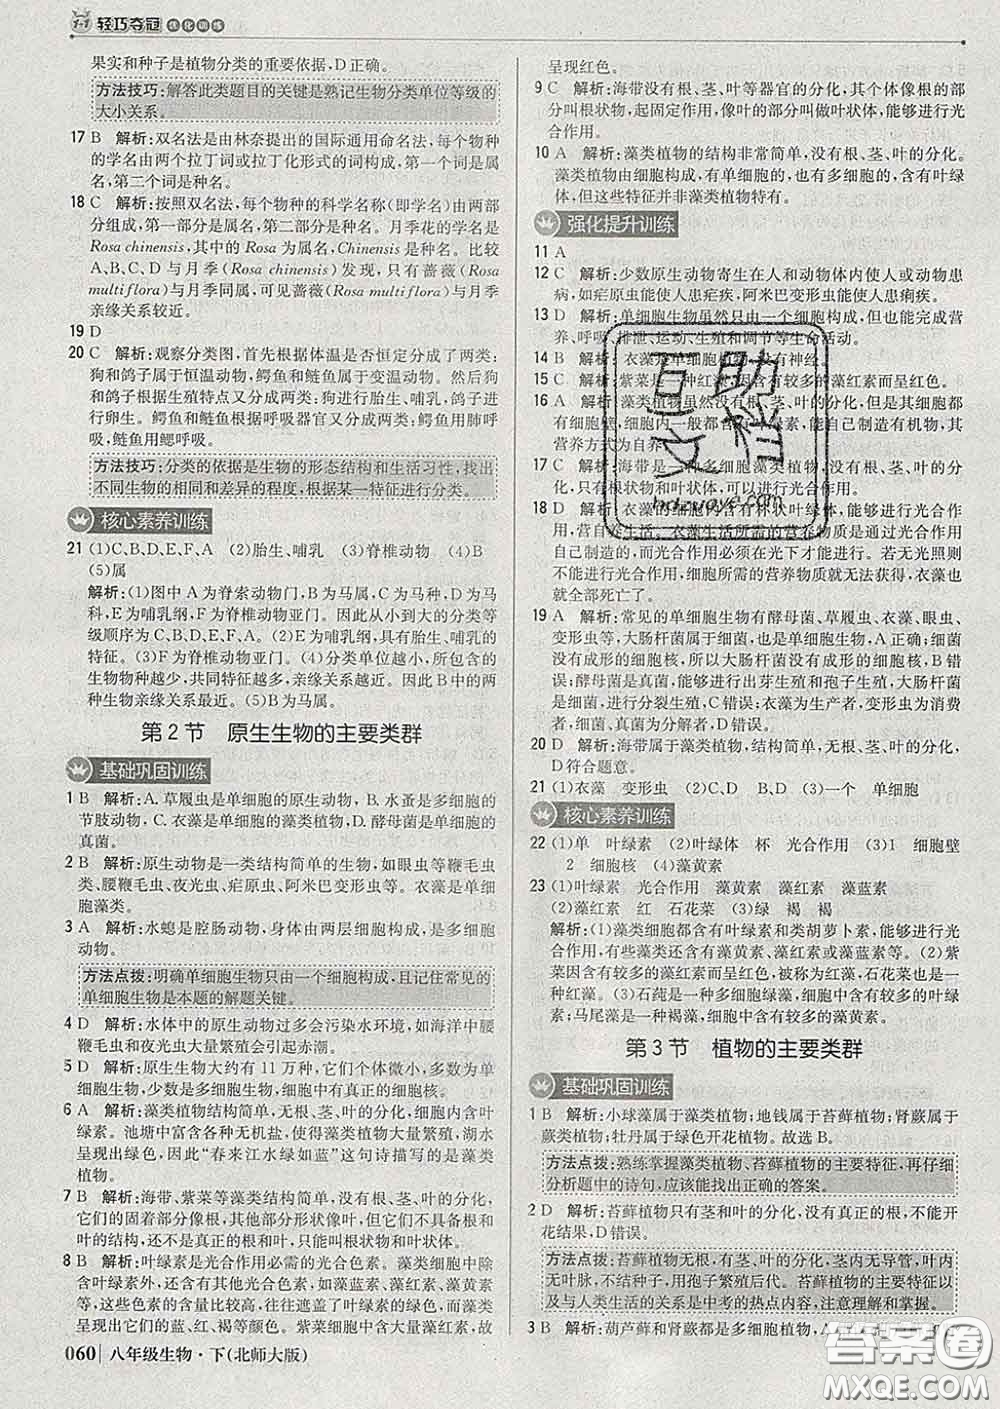 1+1 轻巧夺冠 优化训练
果实和种子是植物分类的重要依据,D正确。
方法技巧:解答此类题目的关键是熟记生物分类单位等级的
大小关系。
17 B 解析:双名法是由林奈提出的国际通用命名法,每个物种
的学名由两个拉丁词或拉丁化形式的词构成,第一个词是属
名,第二个词是种名。
18 C 解析:按照双名法,每个物种的科学名称(即学名)由两部
分组成,第一部分是属名,第二部分是种名。月季花的学名是
Rosa chinensis,其中的Rosa为属名,Chinensis是种名。比较
A、B、C、D与月季(Rosa chinensis)发现,只有蔷薇(Rosa
multiflora)与月季同属,可见蔷薇(Rosa multiflora)与月季
亲缘关系较近。
19 D
20 C 解析:观察分类图,首先根据体温是否恒定分成了两类:
狗和鸽子属于恒温动物,鳄鱼和鲢鱼属于变温动物。然后狗
和鸽子根据生殖特点又分成两类:狗进行胎生、哺乳,鸽子进
行卵生。鳄鱼和鲢鱼根据呼吸器官又分成两类:鳄鱼用肺呼
吸,鲢鱼用鳃呼吸。
方法技巧:分类的依据是生物的形态结构和生活习性,找出
不同生物的相同和差异的程度,根据某一特征进行分类。
核心素养训练
21 (1)C、B、D、E、F、A (2)胎生、哺乳 (3)脊椎动物 (4)B
(5)属
解析:(1)图中A为脊索动物门,B为马属,C为马种,D为马
科,E为哺乳纲,F为脊椎动物亚门。因此从小到大的分类等
级顺序为C、B、D、E、F、A。(2)E为哺乳纲,具有胎生、哺乳的
特征。(3)F为脊椎动物亚门。(4)分类单位越小,所包含的
生物物种越少,共同特征越多,亲缘关系越近。因此B中的两
种生物亲缘关系最近。(5)B为马属。
第2节 原生生物的主要类群
基础巩固训练
1 B 解析:A.草履虫是单细胞的原生动物,B.水蚤是多细胞的
节肢动物,C.衣藻是单细胞的藻类植物,D.酵母菌是单细胞的
真菌。
2 B 解析:原生动物是一类结构简单的生物,如眼虫等鞭毛虫
类、腰鞭毛虫、夜光虫、疟原虫、阿米巴变形虫等。衣藻是单细
胞藻类。
3 A 解析:水螅是腔肠动物,身体由两层细胞构成,是多细胞
动物。
方法点拨:明确单细胞生物只由一个细胞构成,且记住常见的
单细胞生物是本题的解题关键。
4 D 解析:水体中的原生动物过多会污染水环境,如海洋中腰
鞭毛虫和夜光虫的大量繁殖会引起赤潮。
5 D 解析:原生生物大约有11万种,它们个体微小,多数为单
细胞生物,少数是多细胞生物,细胞中有真正的细胞核。
6 A 解析:藻类植物结构简单,无根、茎、叶的分化,细胞内含叶
绿素。池塘中富含各种无机盐,使得藻类植物大量繁殖,湖水
呈现出绿色,因此“春来江水绿如蓝”这句诗描写的是藻类
植物。
7 B 解析:海带、紫菜等藻类结构简单,没有根、茎、叶的分化,
它们的固着部分像根,其他部分形状像叶,但它们不具有根和
叶的结构,这两部分分别叫做根状物和叶状体。
8 B 解析:叶绿素是光合作用必需的光合色素。藻类细胞中除
含叶绿素外,还含有其他光合色素,如藻蓝素、藻红素、藻黄素
等,这些色素的含量比较高,往往遮盖了叶绿素的绿色,而藻类
呈现出所在的蓝、红、褐等颜色。紫菜细胞中含大量藻红素,故
060 八年级生物·下(北师大版)
呈现红色。
9 C 解析:海带没有根、茎、叶等器官的分化,其个体像根的部
分叫根状物,起固定作用,像叶的部分叫做叶状体,能够进行光
合作用。
10 A 解析:藻类植物的结构非常简单,没有根、茎、叶的分化。
藻类植物由细胞构成,有单细胞的,也有多细胞的,含有叶绿
体,但这些特征并非藻类植物特有。
强化提升训练
11 A
12 C 解析:少数原生动物寄生在人和动物体内使人或动物患
病,如疟原虫能使人患疟疾,阿米巴变形虫能使人患痢疾。
13 D 解析:单细胞生物虽然只由一个细胞构成,但也能完成营
养、呼吸、排泄、运动、生殖和调节等生命活动。
14 B 解析:衣藻是单细胞植物,没有神经。
15 C 解析:紫菜是一种红藻,因含有较多的藻红素而呈红色。
16 A 解析:藻类植物虽然没有根、茎、叶的分化,但是其细胞
都有细胞壁,细胞内一般都含有叶绿素,能自己制造有机物,其
营养方式为自养。
17 C 解析:海带是一种多细胞藻类植物,没有根、茎、叶的分
化,只有根状物和叶状体,可以进行光合作用。
18 D 解析:衣藻的细胞内含有杯状叶绿体,能够进行光合作
用,营自养生活。衣藻生活所需的营养物质是通过光合作用
自己制造的,而光合作用必须在光下才能进行。若无光照不
能进行光合作用,细胞所需的营养物质就无法获得,衣藻也
就全部死亡了。
19 A 解析:常见的单细胞生物有酵母菌、草履虫、衣藻、眼虫、
变形虫等,大肠杆菌属于细菌,也是单细胞生物,A正确;细菌
没有成形的细胞核,所以大肠杆菌没有成形的细胞核,B错
误;酵母菌能够进行出芽生殖和孢子生殖,大肠杆菌
是进行分裂生殖,C错误;衣藻为生产者,变形虫为消费
者,细菌、真菌为分解者,D错误。
20 D 解析:海带属于藻类植物,结构简单,无根、茎、叶的分化,
D符合题意。
21 (1)衣藻 变形虫 (2)C、D、B、D (3)一个 单细胞
核心素养训练
22 (1)单 叶绿素 (2)叶绿体 杯 光合作用 (3)1 细胞壁
2 细胞核 (4)藻黄素
23 (1)叶绿素 光合作用 藻黄素 藻红素 藻蓝素
(2)藻红素 红 石花菜 (3)绿 褐 褐
解析:(1)藻类细胞都含有叶绿素和类胡萝卜素,能够进行光
合作用,有些藻类还含有藻黄素、藻红素或藻蓝素等。(2)紫
菜因含有较多的藻红素而呈红色,被称为红藻,石花菜也是一
种红藻。(3)石莼是一种多细胞绿藻,细胞中含有较多的叶绿
素;马尾藻是一种褐藻,细胞中含有较多的藻黄素。
第3节 植物的主要类群
基础巩固训练
1 B 解析:小球藻属于藻类植物;地钱属于苔藓植物;肾蕨属于
蕨类植物;牡丹属于绿色开花植物。故选B。
方法点拨:熟练掌握藻类植物、苔藓植物的主要特征,再仔细
分析题中的诗句,应该能找出正确的答案。
2 D 解析:苔藓植物只有茎和叶的分化,没有真正的根,不能开
花结果,D错误。
方法点拨:苔藓植物无根,有茎、叶的分化,茎内无导管,叶内
无叶脉,不结种子,用孢子繁殖后代。苔藓植物的主要特征以
及与人类生活的关系是中考的热点内容,注意理解和掌握。
3 B 解析:葫芦藓和肾蕨都是多细胞植物,A
互助文档
hdzuoye.com
答案圈
MXQE.COM